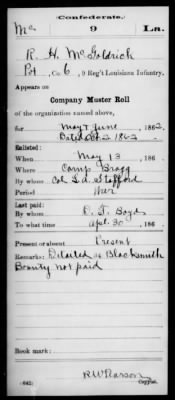 Confederate.
Mc 9 La.
R. H. McGoldrich
Pvt, Co. G, 9 Reg't Louisiana Infantry.
Appears on
Company Muster Roll
of the organization named above,
for May & June, 1862.
Dated Oct 2 1862
Enlisted:
When May 13, 186
Where Camp Bragg
By whom Col. L. A. Stafford
Period War
Last paid:
By whom D. F. Boyd
To what time Apl. 30, 186
Present or absent Present
Remarks: Detailed as Blacksmith
Bounty not paid
Book mark:
R W Pearson
(642) Copyist.